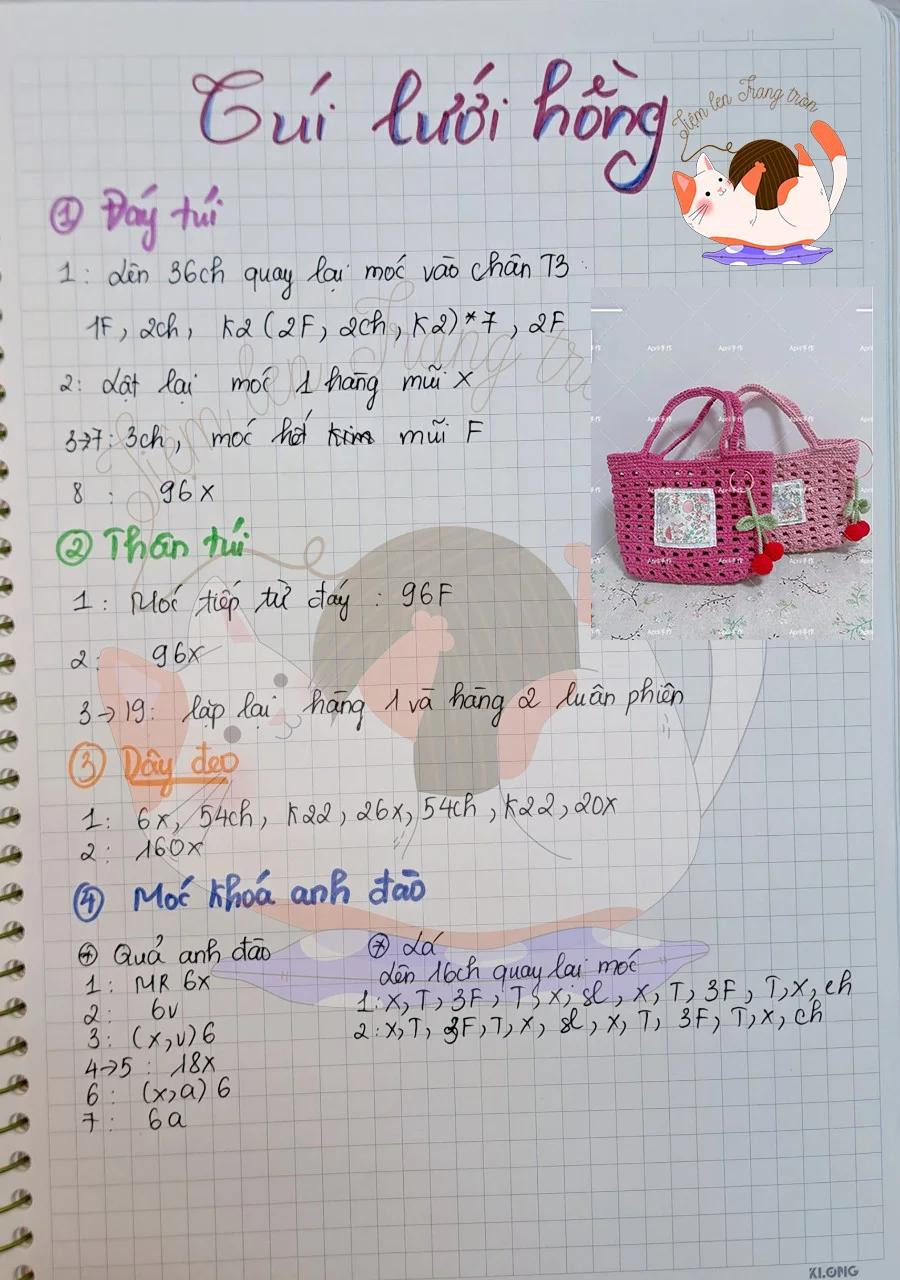 Túi lưới hồng
Tiệm len Trang tròn
① Đáy túi
1: Lên 36ch quay lại móc vào chân T3
1F, 2ch, K2 (2F, 2ch, K2)*7, 2F
2: Lật lại móc 1 hàng mũi X
3→7: 3ch, móc hết mũi F
8 : 96x
② Thân túi
1: Móc tiếp từ đáy : 96F
2: 96x
3→19: lặp lại hàng 1 và hàng 2 luân phiên
③ Dây đeo
1: 6x, 54ch, K22, 26x, 54ch, K22, 20x
2: 160x
④ Móc khoá anh đào
⊛ Quả anh đào
1: MR 6x
2: 6v
3: (x,v)6
4→5 : 18x
6: (x,a) 6
7: 6a
⊛ Lá
Lên 16ch quay lại móc
1: X, T, 3F, T, x, sl, x, T, 3F, T, x, ch
2: X, T, 3F, T, x, sl, x, T, 3F, T, x, ch
Tiệm len Trang tròn
KLONG